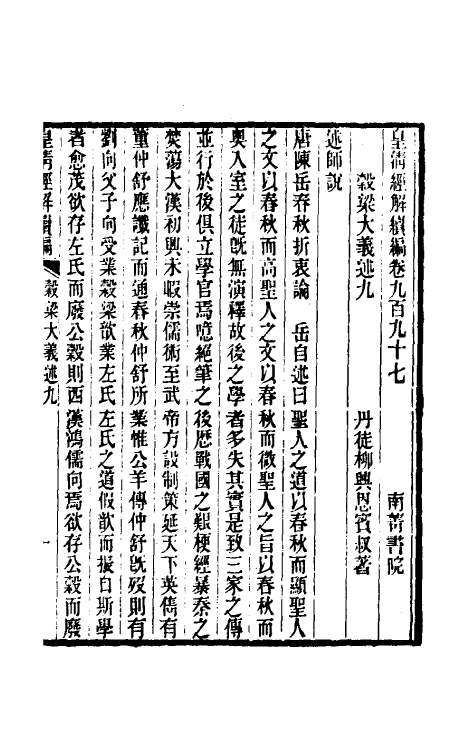 皇清經解續編卷九百九十七
南菁書院
穀梁大義述九
丹徒柳興恩賓叔著
述師說
唐陳岳春秋折衷論　岳自述曰聖人之道以春秋而顯聖人
之文以春秋而高聖人之文以春秋而微聖人之旨以春秋而
奧入室之徒旣無演釋故後之學者多失其實是致三家之傳
並行於後俱立學官焉噫絕筆之後歷戰國之艱梗經暴秦之
焚蕩大漢初興未暇崇儒術至武帝方設制策延天下英雋有
董仲舒應讖記而通春秋仲舒所業惟公羊傳仲舒旣歿則有
劉向父子向受業穀梁歆業左氏左氏之道假歆而振自斯學
者愈茂欲存左氏而廢公穀則西漢鴻儒向焉欲存公穀而廢
皇清經解續編
穀梁大義述九
一